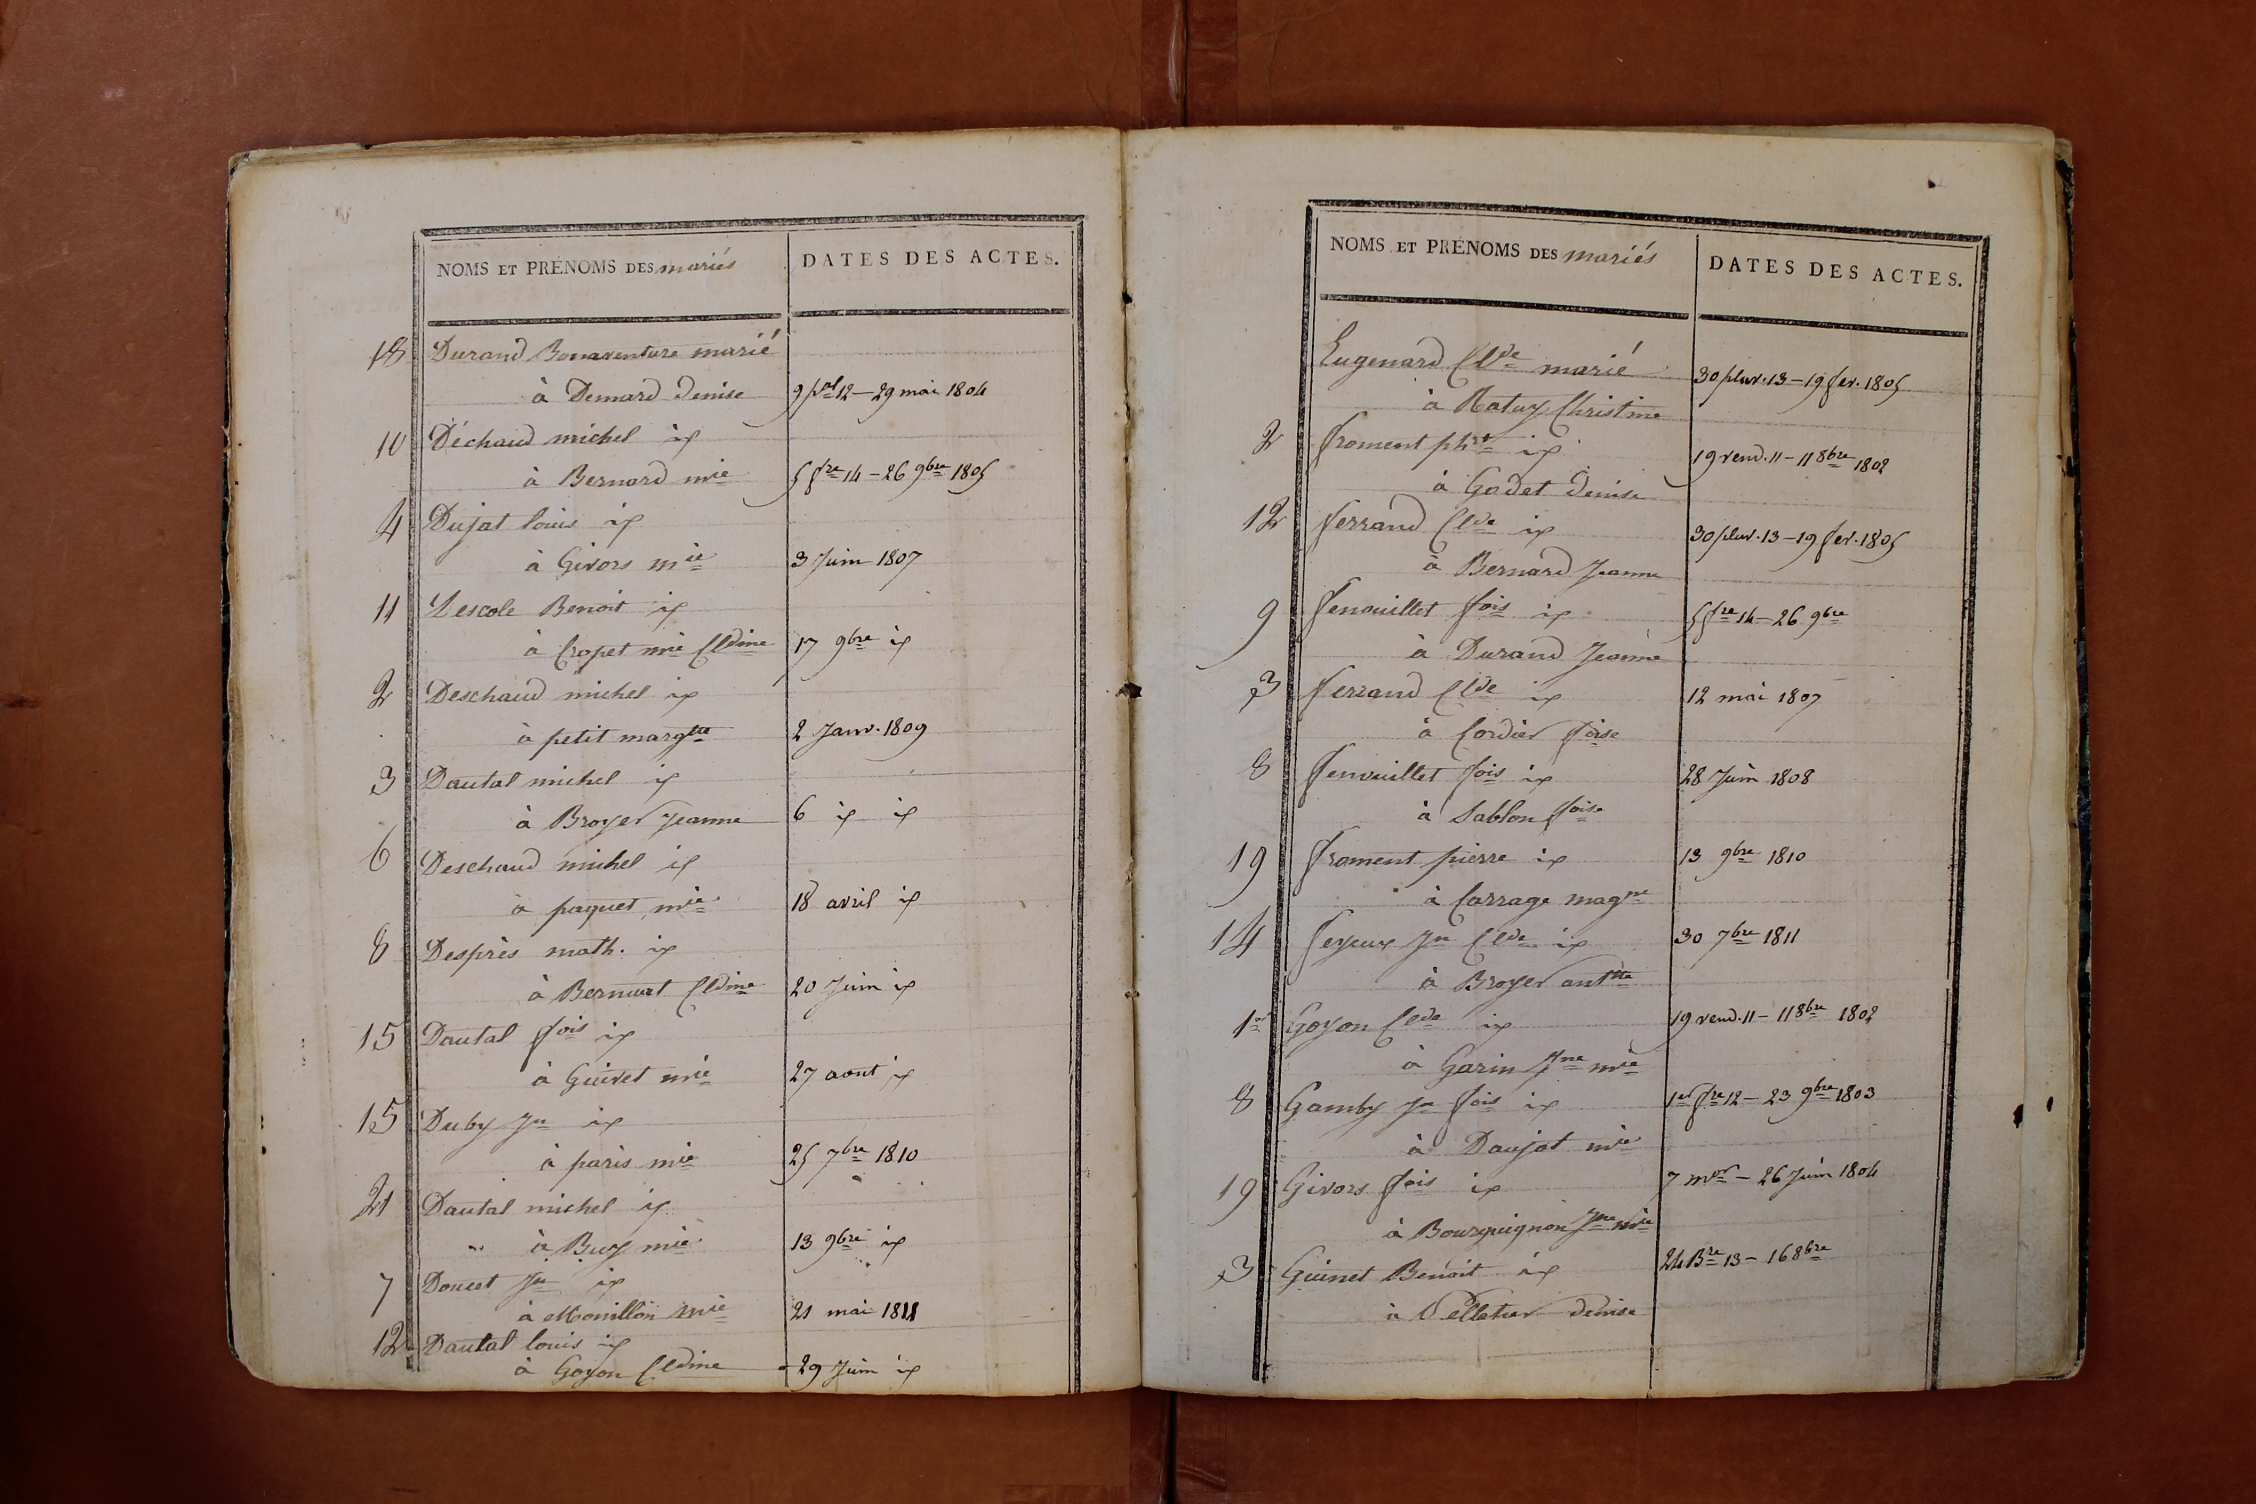 NOMS ET PRÉNOMS DES mariés
DATES DES ACTES.
18 Durand Bonaventure marié
à Demard denise 9 pal 12 - 29 mai 1804
10 Déchaud michel id
à Bernard mie 5 fre 14 - 26 9bre 1805
4 Dujat louis id
à Givors mie 3 Juin 1807
11 Lescole Benoit id
à Cropet mie Cldine 17 9bre id
2 Deschaud michel id
à petit margtte 2 Janv. 1809
3 Dautal michel id
à Broyer Jeanne 6 id id
6 Deschaud michel id
à paquet mie 18 avril id
8 Desprès math. id
à Cldine 20 Juin id
15 Dautal fois id
à Guivet mie 27 aout id
15 Duby Jn id
à paris mie 25 7bre 1810
21 Dautal michel id
à Buy mie 13 9bre id
7 Doucet Jn id
à Monillon mie 21 mai 1811
12 Dautal louis id
à Goyon Cldine 29 Juin id
NOMS ET PRÉNOMS DES mariés
DATES DES ACTES.
Eugenard Clde marié 30 pluv. 13 - 19 fev. 1805
à Ratuy Christine
2 froment id 19 vend. 11 - 11 8bre 1802
à Godet denise
12 ferrand Clde id 30 pluv. 13 - 19 fev. 1805
à Bernard Jeanne
9 fenouillet fois id 5 fre 14 - 26 9bre
à Durand Jeanne
3 ferrand Clde id 12 mai 1807
à Cordier foise
8 fenouillet fois id 28 Juin 1808
à Sablon foise
19 froment pierre id 13 9bre 1810
à Carrage magne
14 feyeux Jn Clde id 30 7bre 1811
à Broyer antte
1er Goyon Clde id 19 vend. 11 - 11 8bre 1802
à Garin Jne mie
8 Gamby Jn fois id 1er fre 12 - 23 9bre 1803
à Daujat mie
19 Givors fois id 7 mor - 26 Juin 1804
à Bourguignon Jne mie
3 Guinet Benoit id 24 Bre 13 - 16 8bre
à Pelletier denise